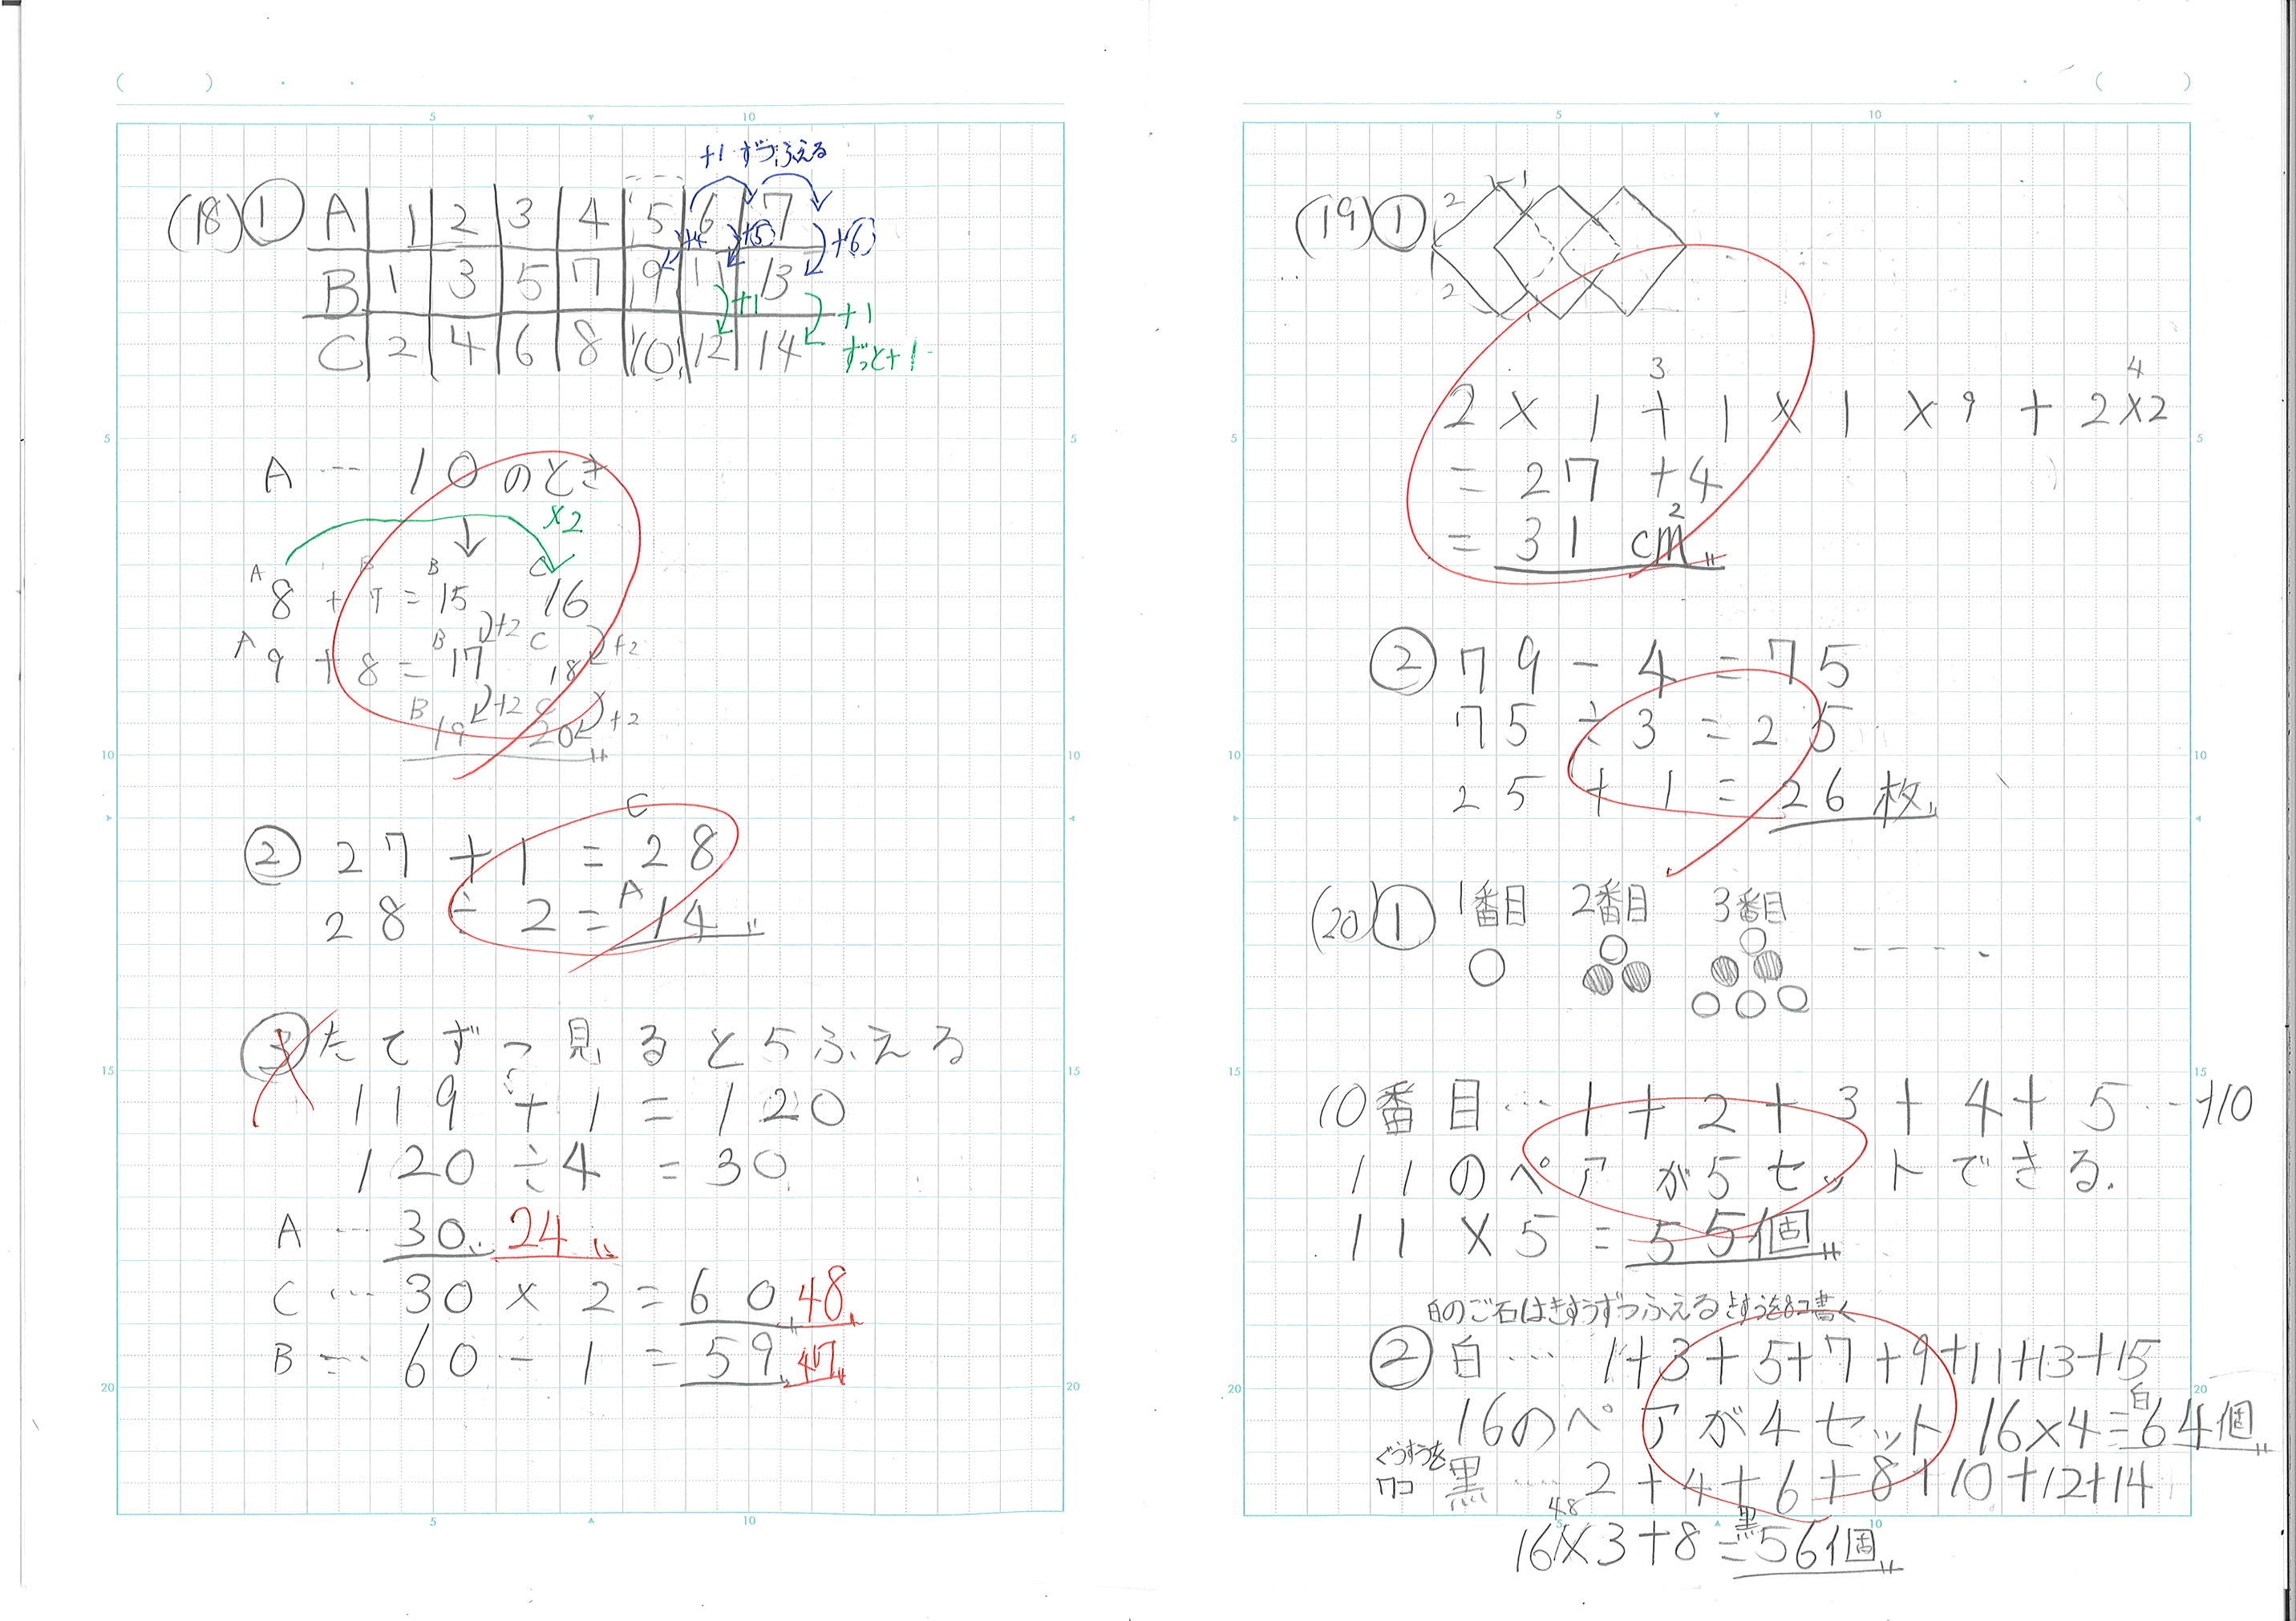 (18) ① A 1 2 3 4 5 6 7
+1ずつふえる
+4 +(5) +(6)
B 1 3 5 7 9 11 13
+1 +1
C 2 4 6 8 10 12 14
ずっと+1
A … 10のとき
×2
A 8 + B 7 = B 15 C 16
+2 +2
A 9 + 8 = B 17 C 18
+2 +2
B 19 C 20
② 27 + 1 = C 28
28 ÷ 2 = A 14
③ たてずつ見ると5ふえる
119 + 1 = 120
120 ÷ 4 = 30
A … 30 24
C … 30 × 2 = 60 48
B … 60 - 1 = 59 47
(19) ①
2 1
2
2 × 1 + 1 × 1 × 9 + 2×2
3 4
= 27 + 4
= 31 cm²
② 79 - 4 = 75
75 ÷ 3 = 25
25 + 1 = 26 枚
(20) ① 1番目 2番目 3番目
10番目… 1 + 2 + 3 + 4 + 5 … +10
11のペアが5セットできる.
11 × 5 = 55個
白のご石はきすうずつふえる きすうを8コ書く
② 白 … 1+3+5+7+9+11+13+15
16のペアが4セット 16×4=白64個
ぐうすうを7コ
黒 … 2+4+6+8+10+12+14
48
16×3+8=黒56個